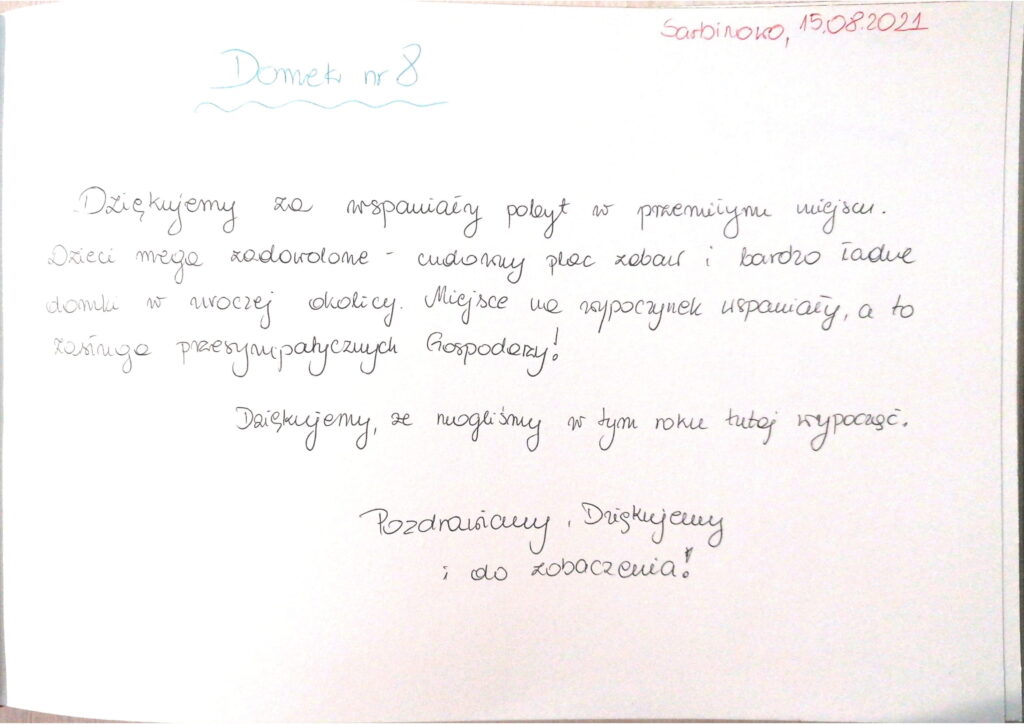 Sarbinowo, 15.08.2021
Domek nr 8
Dziękujemy za wspaniały pobyt w przemiłym miejscu.
Dzieci mega zadowolone - cudowny plac zabaw i bardzo ładne
domki w uroczej okolicy. Miejsce na wypoczynek wspaniały, a to
zasługa przesympatycznych Gospodarzy!
Dziękujemy, że mogliśmy w tym roku tutaj wypocząć.
Pozdrawiamy, Dziękujemy
i do zobaczenia!